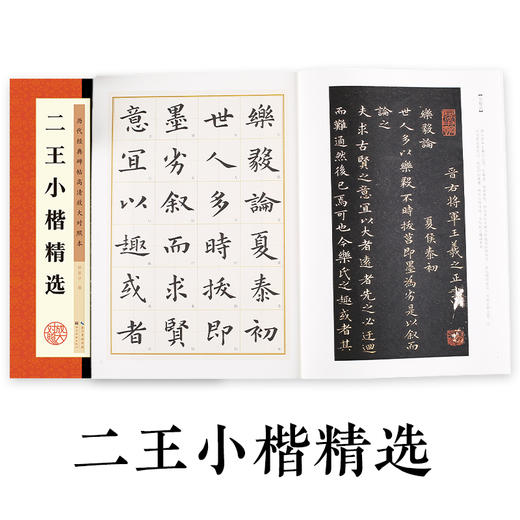 历代经典碑帖高清放大对照本
二王小楷精选
放大对照
樂毅論夏泰初
世人多時拔即
墨劣叙而求賢
意宜以趣或者
晉右將軍王羲之正書
樂毅論 夏侯泰初
世人多以樂毅不時拔莒即墨為劣是以叙而
論之
夫求古賢之意宜以大者遠者先之必迂迴
而難通然後已焉可也今樂氏之趣或者其
二王小楷精选